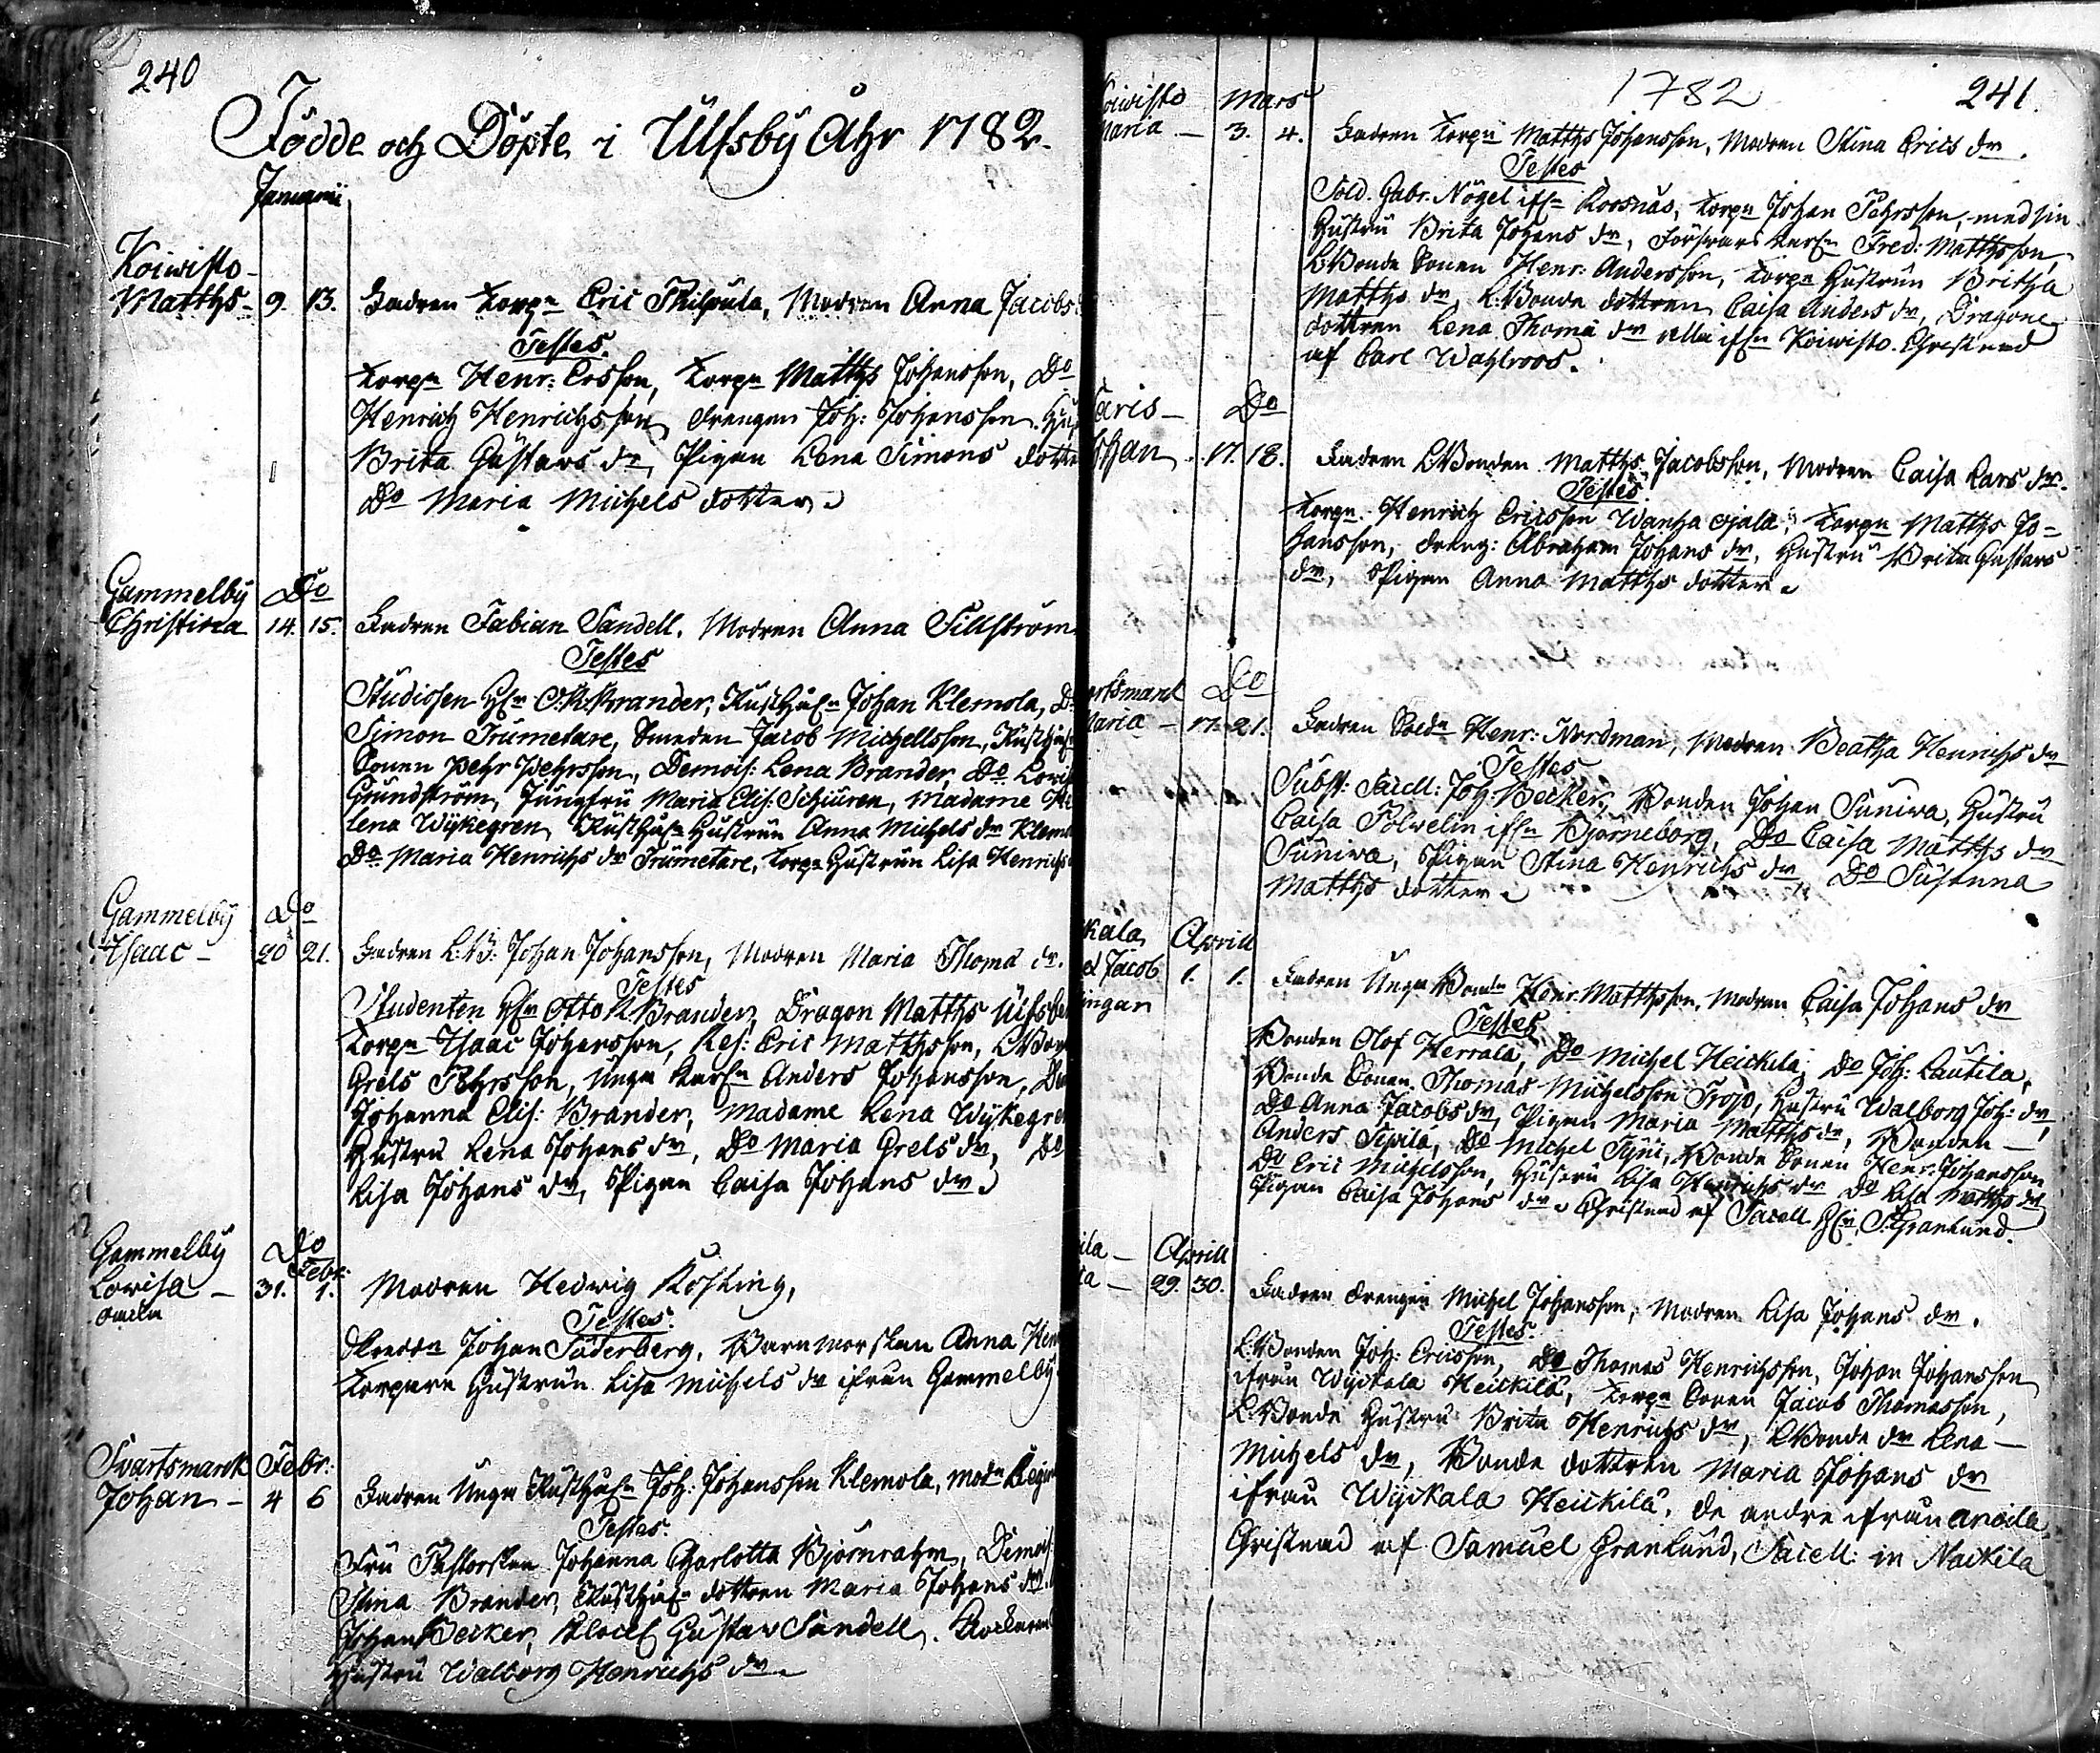 240
Födde och Döpte i Ulfsby Åhr 1782.
Januarii
Koiwisto
Matths - 9. 13. Fadren Torp:n Eric Thilpula, Modren Anna Jacobs
Testes.
Torp:n Henr: Ersson, Torp:n Matths Johansson, Do
Henrich Henrichsson, drengen Joh: Johansson. Hust
Brita Gustavs dr, Pigan Lena Simons dotter
Do Maria Michels dotter.
Gammelby Do
Christina 14. 15. Fadren Fabian Sandell. Modren Anna Sillström
Testes
Studiosen H:r O. R. Brander, Rusth:n Johan Klemola, Do
Simon Trumetare, Smeden Jacob Michellsson, Rusth
Sonen Pehr Pehrsson, Demois: Lena Brander, Do Lovis
Grundström, Jungfru Maria Elis: Schiüren, Madame He
lena Wykegren, Rusth: Hustrun Anna Michels dr Klem
Do Maria Henrichs dr Trumetare, Torp:n Hustrun Lisa Henrichs
Gammelby Do
Isaac - 20 21. Fadren L:B: Johan Johansson, Modren Maria Thoma dr.
Testes
Studenten H:r Otto R Brander, Dragon Matths Ulfsbe
Torp:n Isaac Johansson, Res: Eric Matthsson, LBon
Grels Pehrsson, Unga Karl:n Anders Johansson, De
Johanna Elis: Brander, Madame Lena Wykegren
Hustru Lena Johans dr, Do Maria Grels dr, Do
Lisa Johans dr, Pigan Caisa Johans dr.
Gammelby Do Febr:
Lovisa - 31. 1. Modren Hedwig Kosking,
oächta
Testes.
Johan Söderberg, Barnmorskan Anna Hen
Torpare Hustrun Lisa Michels dr ifrån Gammelby
Svartsmark Febr:
Johan - 4 6 Fadren Unga Rusth:n Joh: Johansson Klemola, Mod:n Regin
Testes.
Fru Pastorskan Johanna Charlotta Björnrahm, Demois:
Stina Brander, Rusth:n dottren Maria Johans dr.
Johan Becker, Klock Gustav Sandell.
Hustru Walborg Henrichs dr.
1782 241.
Koiwisto Mars
Maria - 3. 4. Fadren Torp:n Matths Johansson, Modren Stina Erics dr.
Testes
Sold. Gabr. Nögel ifr:n Koosnäs, Torp:n Johan Pehrsson, med sin
Hustru Brita Johans dr, Fred: Matthsson,
LBonde Sonen Henr: Andersson, Torp:n Hustrun Britha
Matths dr, L:Bonde dottren Caisa Anders dr, Dragone
dottren Lena Thoma dr alla ifr:n Koiwisto. Christnad
af Carl Wahlroos.
aris - Do
Johan. 17. 18. Fadren LBonden Matths Jacobsson, Modren Caisa Lars dr.
Testes
Torp:n Henrich Ericsson Wanha ojala, Torp:n Matths Jo=
hansson, dreng: Abraham Johans dr, Hustru Brita Gustavs
dr, Pigan Anna Matths dotter.
artsmark Do
Maria - 17. 21. Fadren Sold:n Henr: Nordman, Modren Beatha Henrichs dr
Testes
Subst: Sacell: Joh: Becker, Bonden Johan Suniwa, Hustru
Caisa Polwelin ifr:n Björneborg, Do Caisa Matths dr
Suniwa, Pigan Stina Henrichs dr Do Susanna
Matths dotter.
kala, Aprill
el Jacob 1. 1. Fadren Unga Bond:n Henr. Matthsson, Modren Caisa Johans dr
lingar
Testes.
Bonden Olof Herrala, Do Michel Heickilä, Do Joh: Lautila,
Bonde Sonen Thomas Michelsson Frojo, Hustru Walborg Joh: dr,
Do Anna Jacobs dr, Pigan Maria Matths dr, Bonden
Anders Sipilä, Do Michel Tyni, Bonde Sonen Henr: Johansson
Do Eric Michelsson, Hustru Lisa Henrichs dr Do Lisa Matths dr
Pigan Caisa Johans dr. Christnad af Sacell. H:r S. Granlund.
ila - Aprill
ia - 29. 30. Fadren Drengen Michel Johansson, Modren Lisa Johans dr.
Testes.
L:Bonden Joh: Ericsson, Do Thomas Henrichsson, Johan Johansson
ifrån Wyckala Heickilä, Torp:n Sonen Jacob Thomasson,
LBonde Hustru Brita Henrichs dr, LBonde dr Lena
Michels dr, Bonde dottren Maria Johans dr
ifrån Wyckala Heickilä. De andre ifrån Anoila
Christnad af Samuel Granlund, Sacell: in Nackila